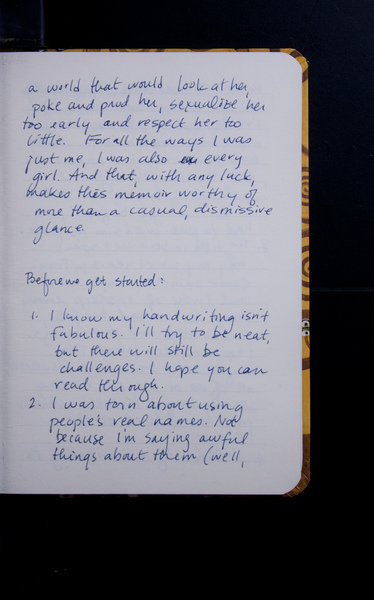 a world that would look at her,
poke and prod her, sexualize her
too early and respect her too
little. For all the ways I was
just me, I was also every
girl. And that, with any luck,
makes this memoir worthy of
more than a casual, dismissive
glance.
Before we get started:
1. I know my handwriting isn't
fabulous. I'll try to be neat,
but there will still be
challenges. I hope you can
read through.
2. I was torn about using
people's real names. Not
because I'm saying awful
things about them (well,